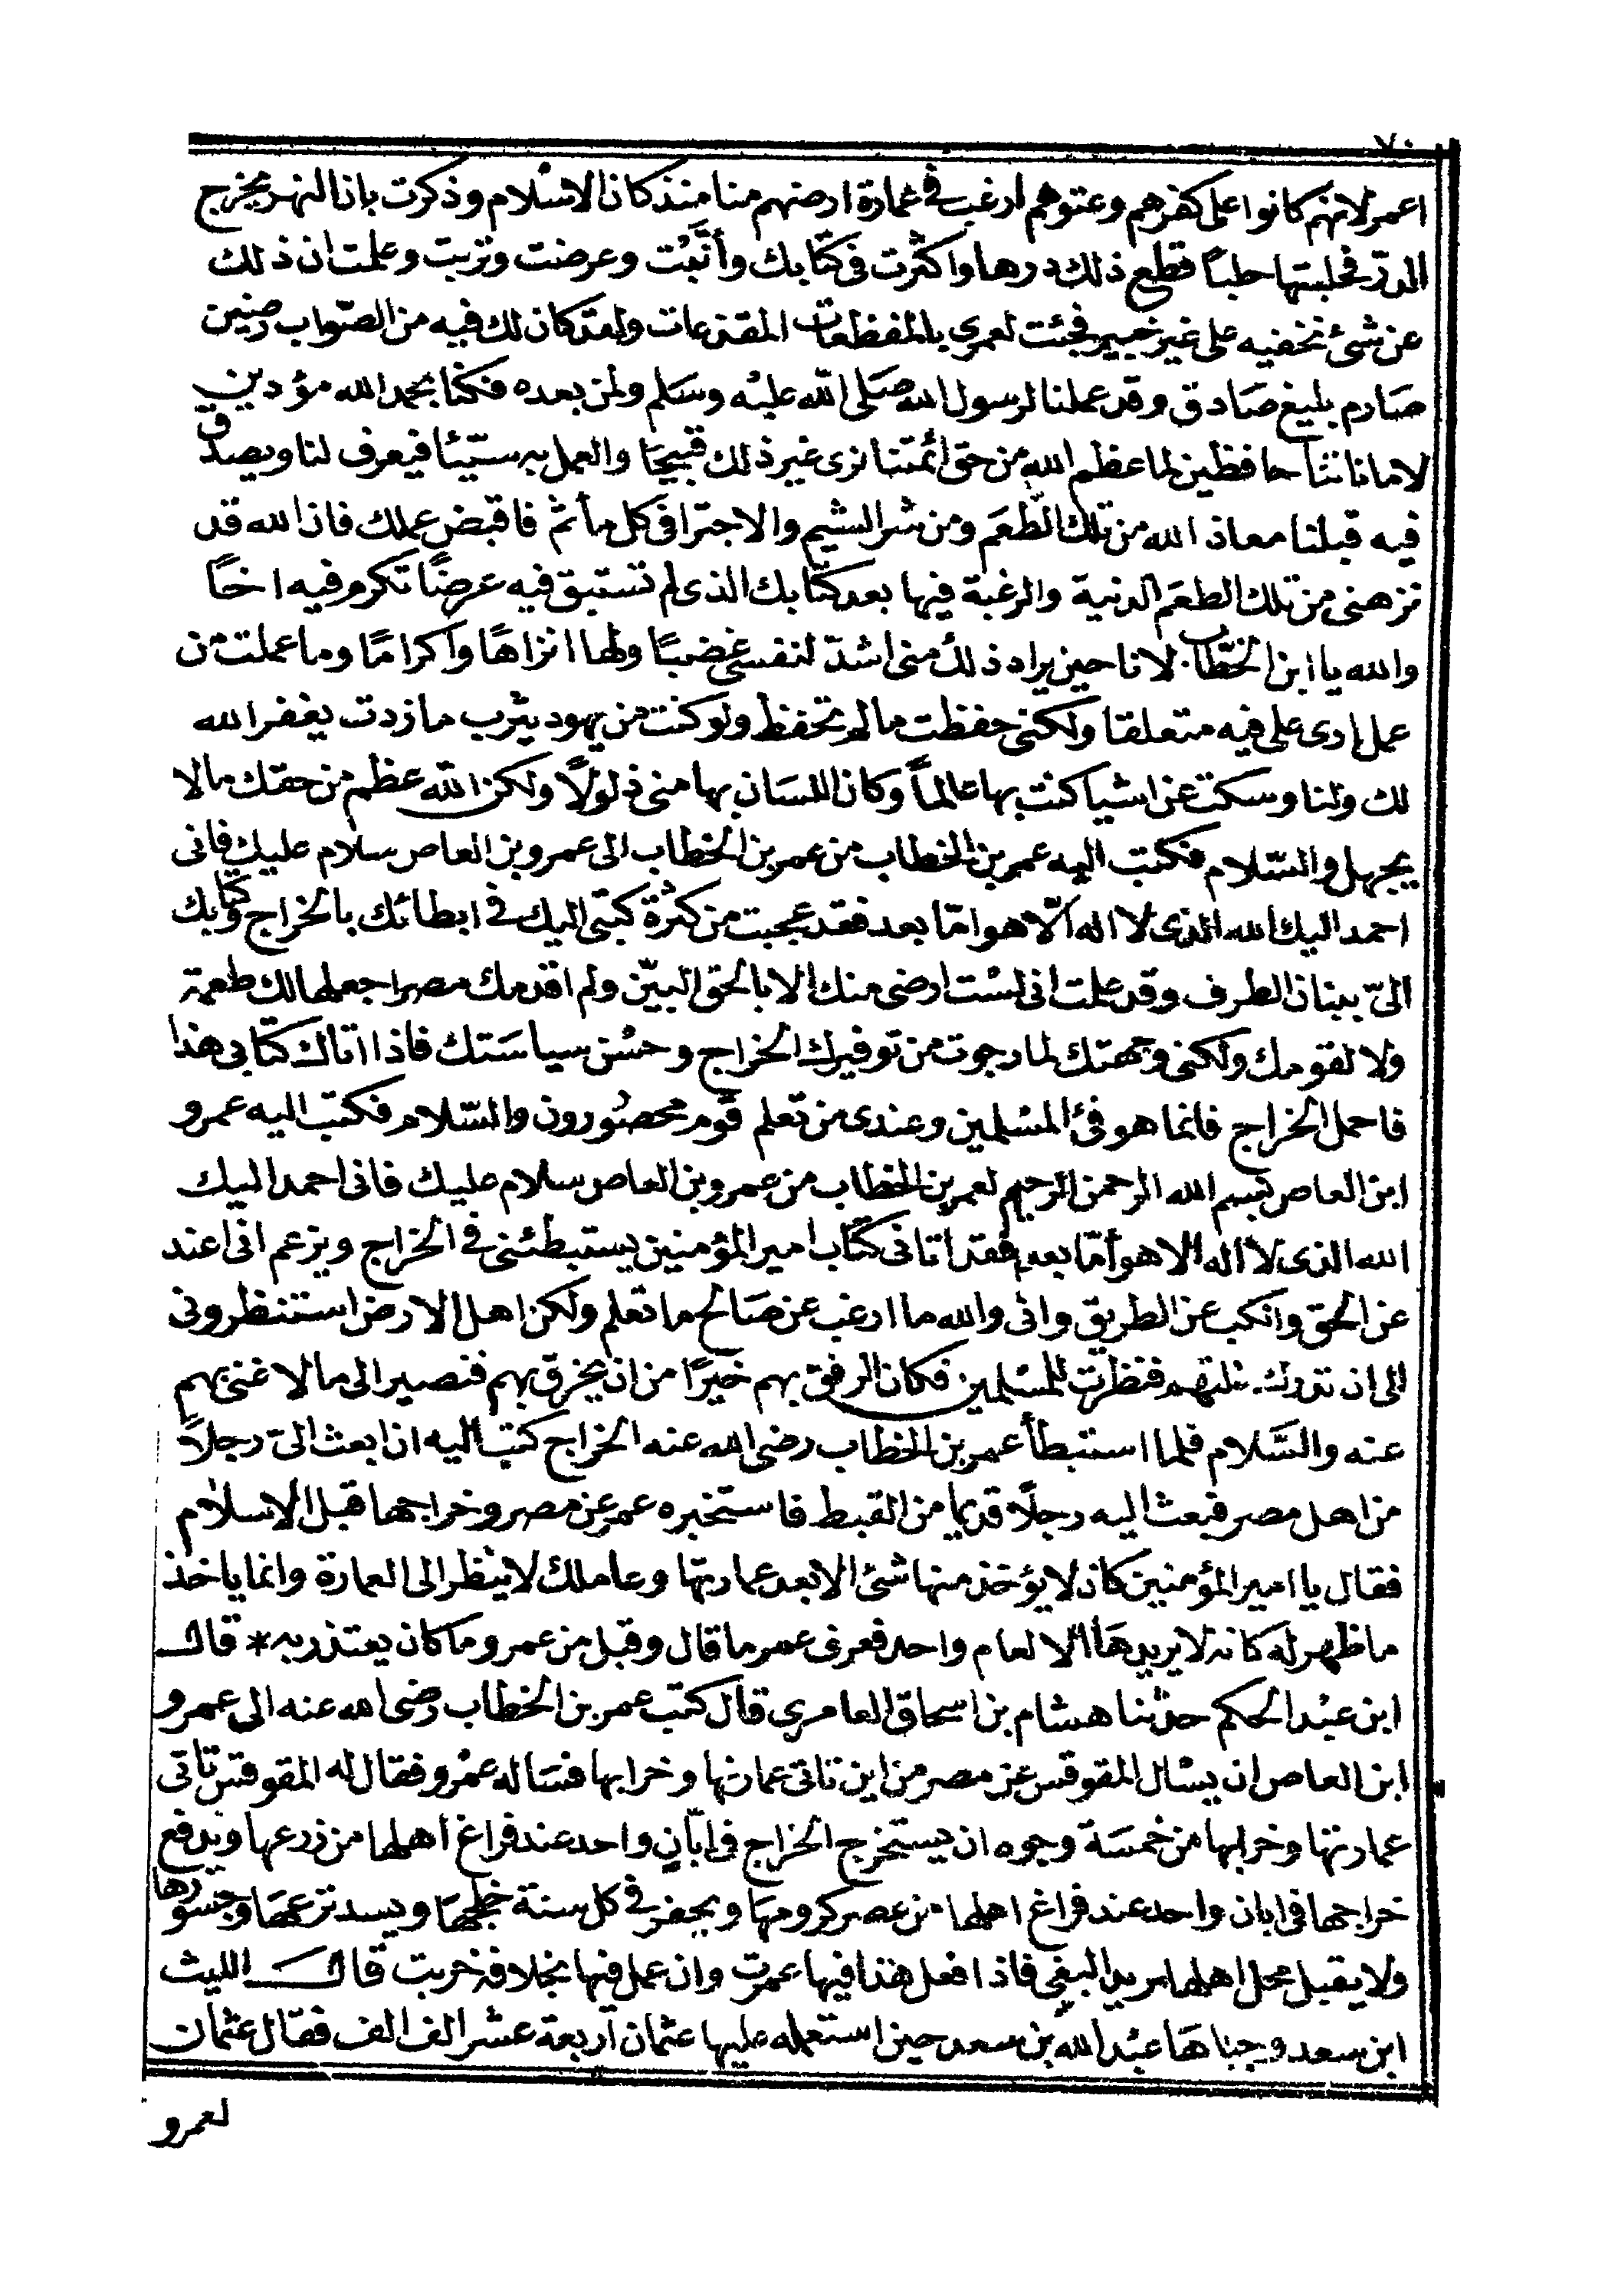 ٧٠
اعمر لانهم كانوا على كفرهم وعتوهم ارغب فى عمارة ارضهم منا منذ كان الاسلام وذكرت بان النهر يخرج
الدرّ فحلبتها حلبًا قطع ذلك درها واكثرت فى كتابك وأنّبت وعرضت وتربت وعلمت ان ذلك
عن شئ تخفيه على غير خبير فجئت لعمرى بالمفظعات المقذعات ولقد كان لك فيه من الصّواب رصين
صارم بليغ صادق وقد عملنا لرسول الله صلى الله عليه وسلم ولمن بعده فكنا بحمد الله مؤدين
لاماناتنا حافظين لما عظم الله من حق ائمتنا نرى غير ذلك قبيحا والعمل به سيّئا فيعرف لنا ويصدق
فيه قبلنا معاذ الله من تلك الطّعم ومن شر الشيم والاجترا فى كل مأثم فاقبض عملك فان الله قد
نزهنى من تلك الطعم الدنية والرغبة فيها بعد كتابك الذى لم تستبق فيه عرضًا تكرم فيه اخًا
والله يا ابن الخطّاب لانا حين يراد ذلك منى اشدّ لنفسى غضبًا ولها انزاهًا واكرامًا وما عملت من
عمل ارى على فيه متعلقا ولكنى حفظت ما لم تحفظ ولو كنت من يهود يثرب ما زدت يغفر الله
لك ولنا وسكت عن اشيا كنت بها عالمًا وكان اللسان بها منى ذلولًا ولكن الله عظم من حقك مالا
يجهل والسّلام فكتب اليه عمر بن الخطاب من عمر بن الخطاب الى عمرو بن العاص سلام عليك فانى
احمد اليك الله الذى لا اله الّا هو امّا بعد فقد عجبت من كثرة كتبى اليك فى ابطائك بالخراج وكتابك
الىّ ببنان الطرف وقد علمت انى لست ارضى منك الا بالحق البيّن ولم اقدمك مصر اجعلها لك طعمة
ولا لقومك ولكنى وجهتك لما رجوت من توفيرك الخراج وحسن سياستك فاذا اتاك كتابى هذا
فاحمل الخراج فانما هو فئ المسلمين وعندى من تعلم قوم محصورون والسّلام فكتب اليه عمرو
ابن العاص بسم الله الرحمن الرحيم لعمر بن الخطاب من عمرو بن العاص سلام عليك فانى احمد اليك
الله الذى لا اله الا هو أمّا بعد فقد أتانى كتاب امير المؤمنين يستبطئنى فى الخراج ويزعم انى اعند
عن الحق وانكب عن الطريق وانى والله ما ارغب عن صالح ما تعلم ولكن اهل الارض استنظرونى
الى ان تدرك غلتهم فنظرت للمسلمين فكان الرفق بهم خيرًا من ان يخرق بهم فنصير الى ما لا غنى بهم
عنه والسّلام فلما استبطأ عمر بن الخطاب رضى الله عنه الخراج كتب اليه ان ابعث الىّ رجلًا
من اهل مصر فبعث اليه رجلًا قديما من القبط فاستخبره عمر عن مصر وخراجها قبل الاسلام
فقال يا امير المؤمنين كان لا يؤخذ منها شئ الا بعد عمارتها وعاملك لا ينظر الى العمارة وانما ياخذ
ما ظهر له كانه لا يريدها الا لعام واحد فعرف عمر ما قال وقبل من عمرو ما كان يعتذر به * قال
ابن عبد الحكم حدثنا هشام بن اسحاق العامرى قال كتب عمر بن الخطاب رضى الله عنه الى عمرو
ابن العاص ان يسال المقوقس عن مصر من اين تاتى عمارتها وخرابها فساله عمرو فقال له المقوقس تاتى
عمارتها وخرابها من خمسة وجوه ان يستخرج الخراج فى ابّان واحد عند فراغ اهلها من زرعها ويدفع
خراجها فى ابان واحد عند فراغ اهلها من عصر كرومها ويحفر فى كل سنة خلجها ويسد ترعها وجسورها
ولا يقبل محل اهلها يريد البغى فاذا فعل هذا فيها عمرت وان عمل فيها بخلافه خربت قال الليث
ابن سعد وجباها عبد الله بن سعد حين استعمله عليها عثمان اربعة عشر الف الف فقال عثمان
لعمرو